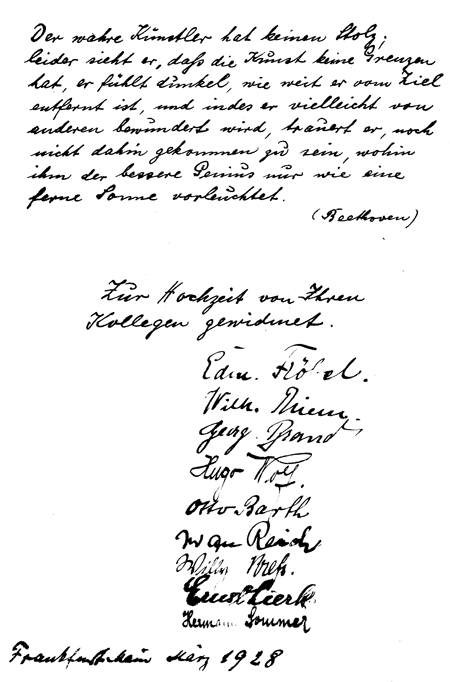 Der wahre Künstler hat keinen Stolz;
leider sieht er, daß die Kunst keine Grenzen
hat, er fühlt dunkel, wie weit er vom Ziel
entfernt ist, und indes er vielleicht von
anderen bewundert wird, trauert er, noch
nicht dahin gekommen zu sein, wohin
ihm der bessere Genius nur wie eine
ferne Sonne vorleuchtet.
(Beethoven)
Zur Hochzeit von Ihren
Kollegen gewidmet.
Edm. Fröbel.
Wilh.
Georg Brand
Hugo Wolf.
Otto Barth
Reich
Willy
Ernst
Hermann Sommer
Frankfurt-Main März 1928